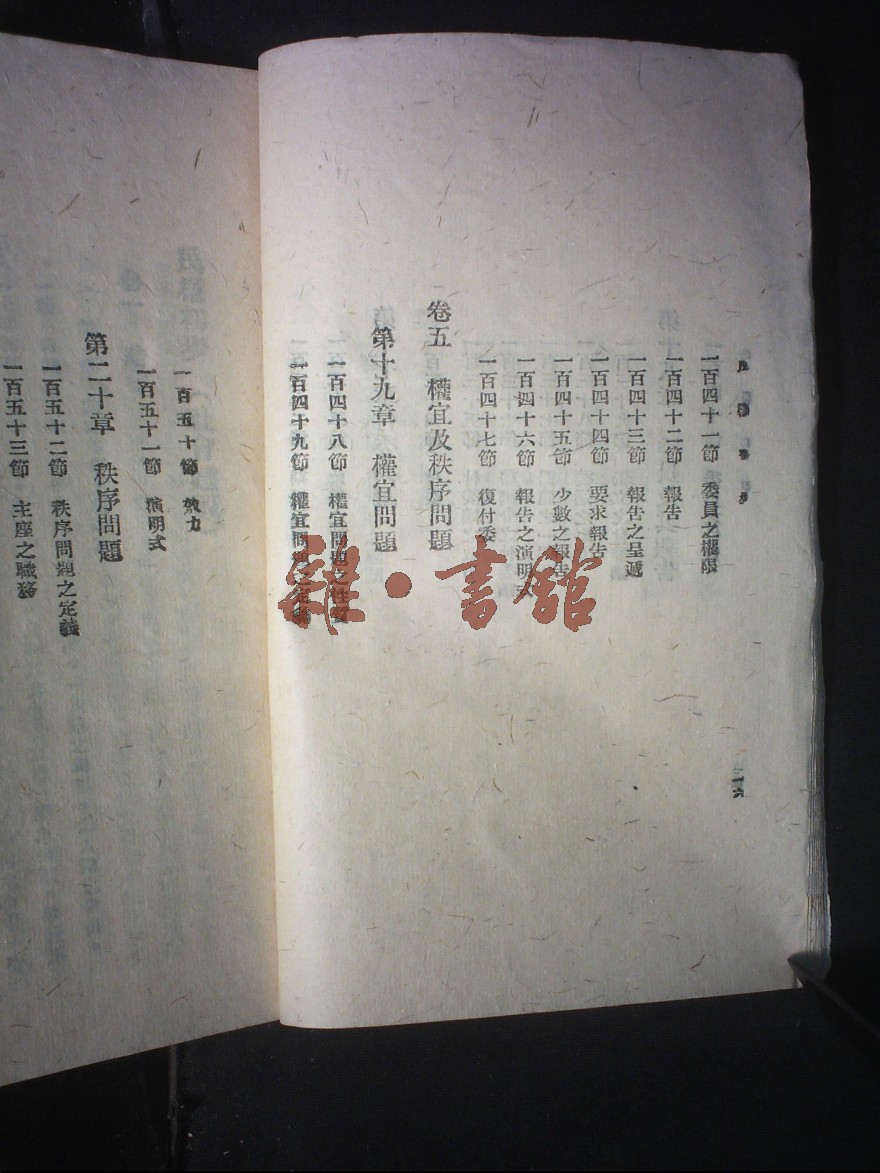 一百四十一節　委員之權限
一百四十二節　報告
一百四十三節　報告之呈遞
一百四十四節　要求報告
一百四十五節　少數之報告
一百四十六節　報告之演明式
一百四十七節　復付委
卷五　權宜及秩序問題
第十九章　權宜問題
一百四十八節　權宜問題之性質
一百四十九節　權宜問題之定義
一百五十節　效力
一百五十一節　演明式
第二十章　秩序問題
一百五十二節　秩序問題之定義
一百五十三節　主座之職務
雜·書館